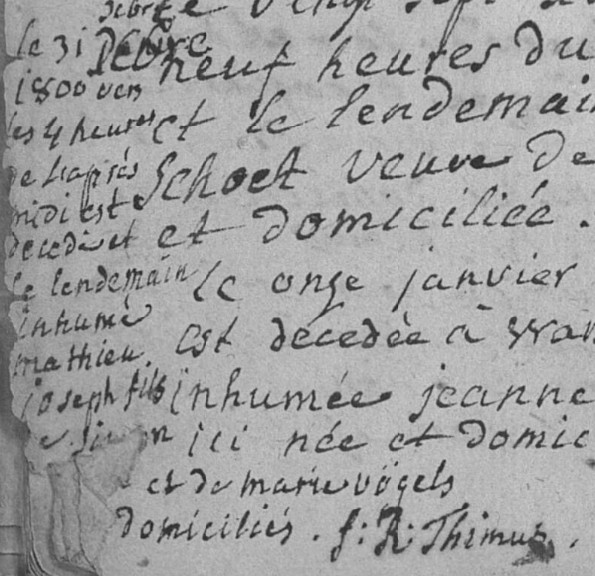 le 31 Xbre
1800 vers
les 4 heures
de l'aprés
midi est
decedé et
le lendemain
inhumé
mathieu
joseph fils
neuf heures du
et le lendemain
Schoet veuve de
et domiciliée.
le onze janvier
est décedée à
inhumée jeanne
ici née et domic
et de marie vögels
domiciliés. f: R: Thimus.